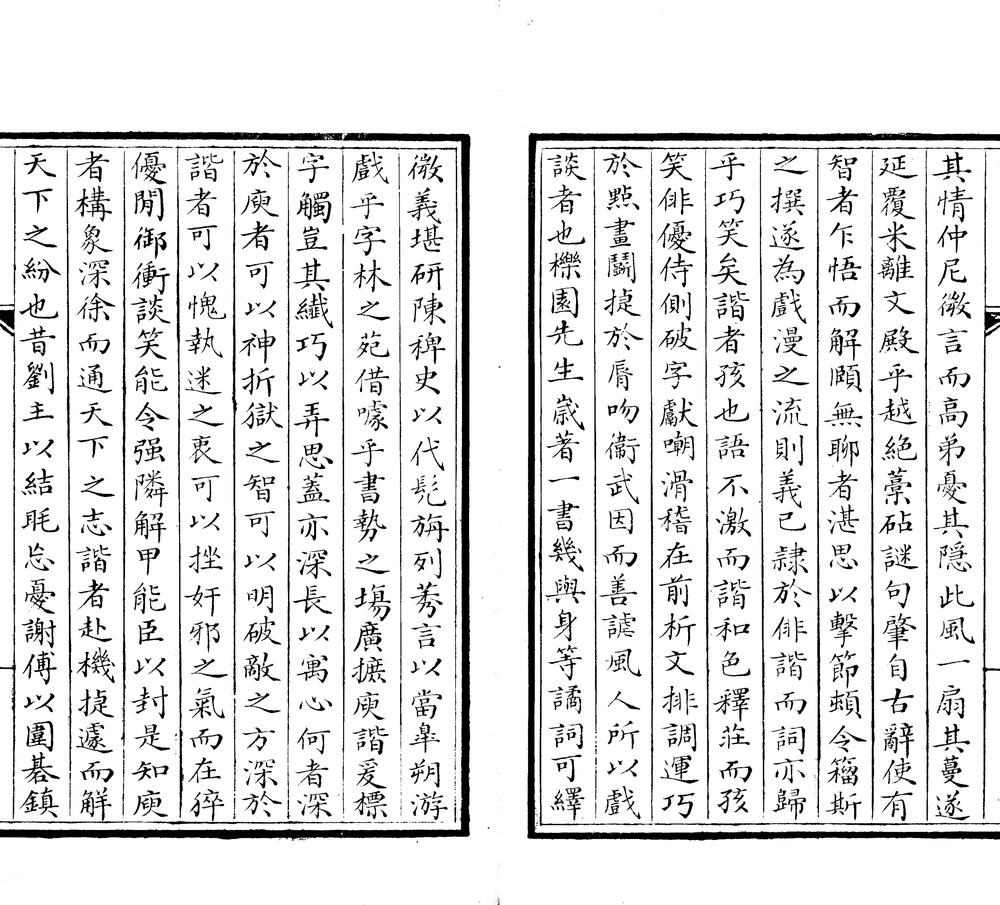 其情仲尼微言而高弟憂其隱此風一扇其蔓遂
延覆米離文殿乎越絕藁砧謎句肇自古辭使有
智者乍悟而解頤無聊者湛思以擊節蝢令籀斯
之撰遂為戲漫之流則義已隷於俳諧而詞亦歸
乎巧笑矣諧者孩也語不激而諧和色釋莊而孩
笑俳優侍側破字獻嘲滑稽在前析文排調運巧
於點畫鬬捷於脣吻衞武因而善謔風人所以戲
談者也櫟園先生嵗著一書幾與身等譎詞可繹
微義堪研陳稗史以代髡旃列莠言以當皐朔游
戲乎字林之苑借噱乎書勢之塲廣擴庾諧爰標
字觸豈其纖巧以弄思蓋亦深長以寓心何者深
於庾者可以神折獄之智可以明破敵之方深於
諧者可以愧執迷之衷可以挫奸邪之氣而在猝
優閒御衝談笑能令强隣解甲能臣以封是知庾
者構象深徐而通天下之志諧者赴機捷遽而解
天下之紛也昔劉主以結毦忘憂謝傅以圍碁鎮